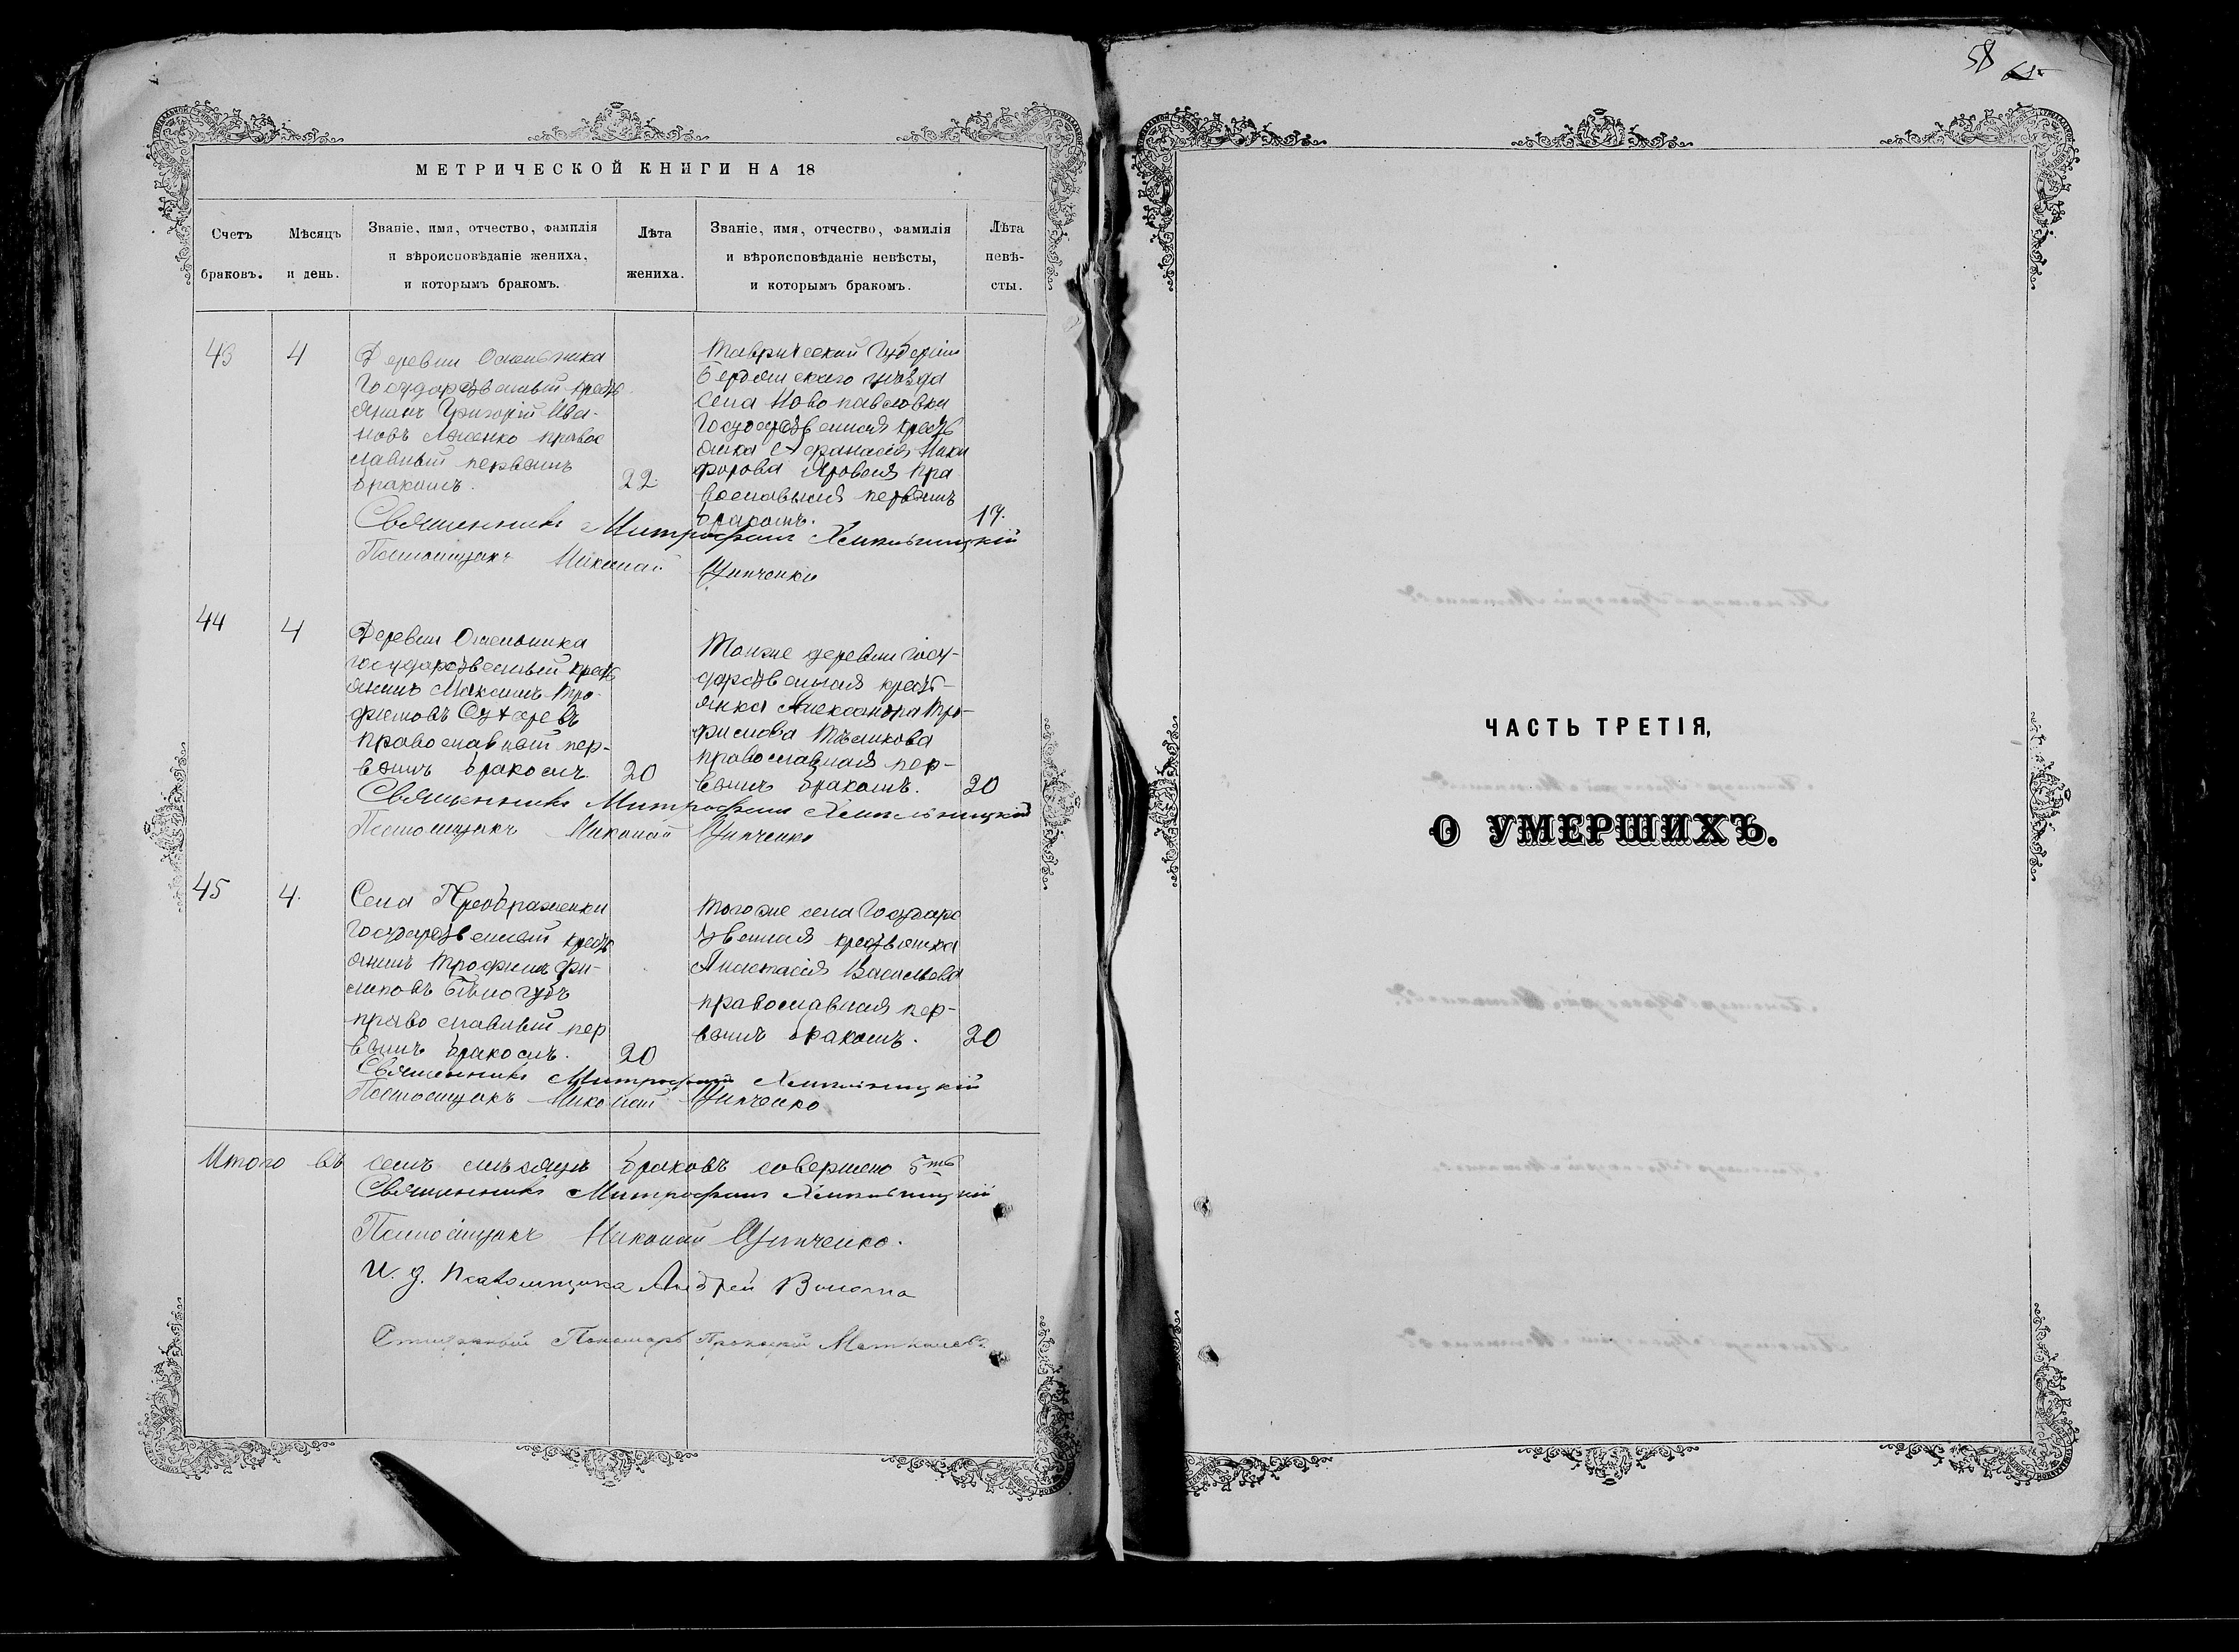 58
МЕТРИЧЕСКОЙ КНИГИ НА 18
Счетъ браковъ.
Мѣсяцъ и день.
Званіе, имя, отчество, фамилія
и вѣроисповѣданіе жениха,
и которымъ бракомъ.
Лѣта жениха.
Званіе, имя, отчество, фамилія
и вѣроисповѣданіе невѣсты,
и которымъ бракомъ.
Лѣта невѣ-
сты.
43
4
Деревни Омельника
Государственный кресть
янинъ Григорій Ива-
новъ правос
лавный первымъ
бракомъ.
22.
Таврической Губерніи
Бердянскаго уѣзда
села Ново павловки
Государственная кресть
янка Афанасія Ники
форова Яровая пра
вославная первымъ
бракомъ.
17.
Священникъ Митрофанъ Хмельницкій
Псаломщикъ Николай Ципченко
44
4
Деревни Омельника
государственный кресть
янинъ Максимъ Тро-
фимовъ Сухаревъ
православный пер-
вымъ бракомъ.
20
Тойже деревни Госу-
дарственная кресть-
янка Александра Тро-
фимова
православная пер-
вымъ бракомъ.
20
Священникъ Митрофанъ Хмельницкій
Псаломщикъ Николай Ципченко
45
4.
Села Преображенки
Государственный кресть
янинъ Трофимъ Фи-
липовъ Бѣлогубъ
православный пер
вымъ бракомъ.
20
Тогоже села Государс
твенная крестьянка
Анастасія Васильева
православная пер-
вымъ бракомъ.
20
Священникъ Митрофанъ Хмельницкій
Псаломщикъ Николай Ципченко
Итого въ семъ мѣсяцѣ браковъ совершено 5ть
Священникъ Митрофанъ Хмельницкій
Псаломщикъ Николай Ципченко.
И. д. Псаломщика Андрей
Пономарь Прокопій
ЧАСТЬ ТРЕТІЯ,
О УМЕРШИХЪ.